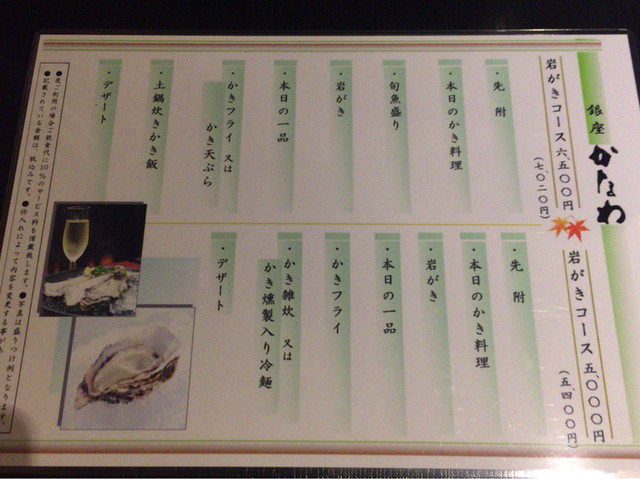 銀座
かなわ
岩がきコース 六、五〇〇円
(七、〇二〇円)
・先 附
・本日のかき料理
・旬魚盛り
・岩がき
・本日の一品
・かきフライ 又は
かき天ぷら
・土鍋炊きかき飯
・デザート
岩がきコース 五、〇〇〇円
(五、四〇〇円)
・先 附
・本日のかき料理
・岩がき
・本日の一品
・かきフライ
・かき雑炊 又は
かき燻製入り冷麺
・デザート
●夜ご利用の場合ご飲食代に10%のサービス料を頂戴致します。●写真は盛りつけ例となります。
●記載されている金額は、税込みです。●仕入れによって内容を変更する事が